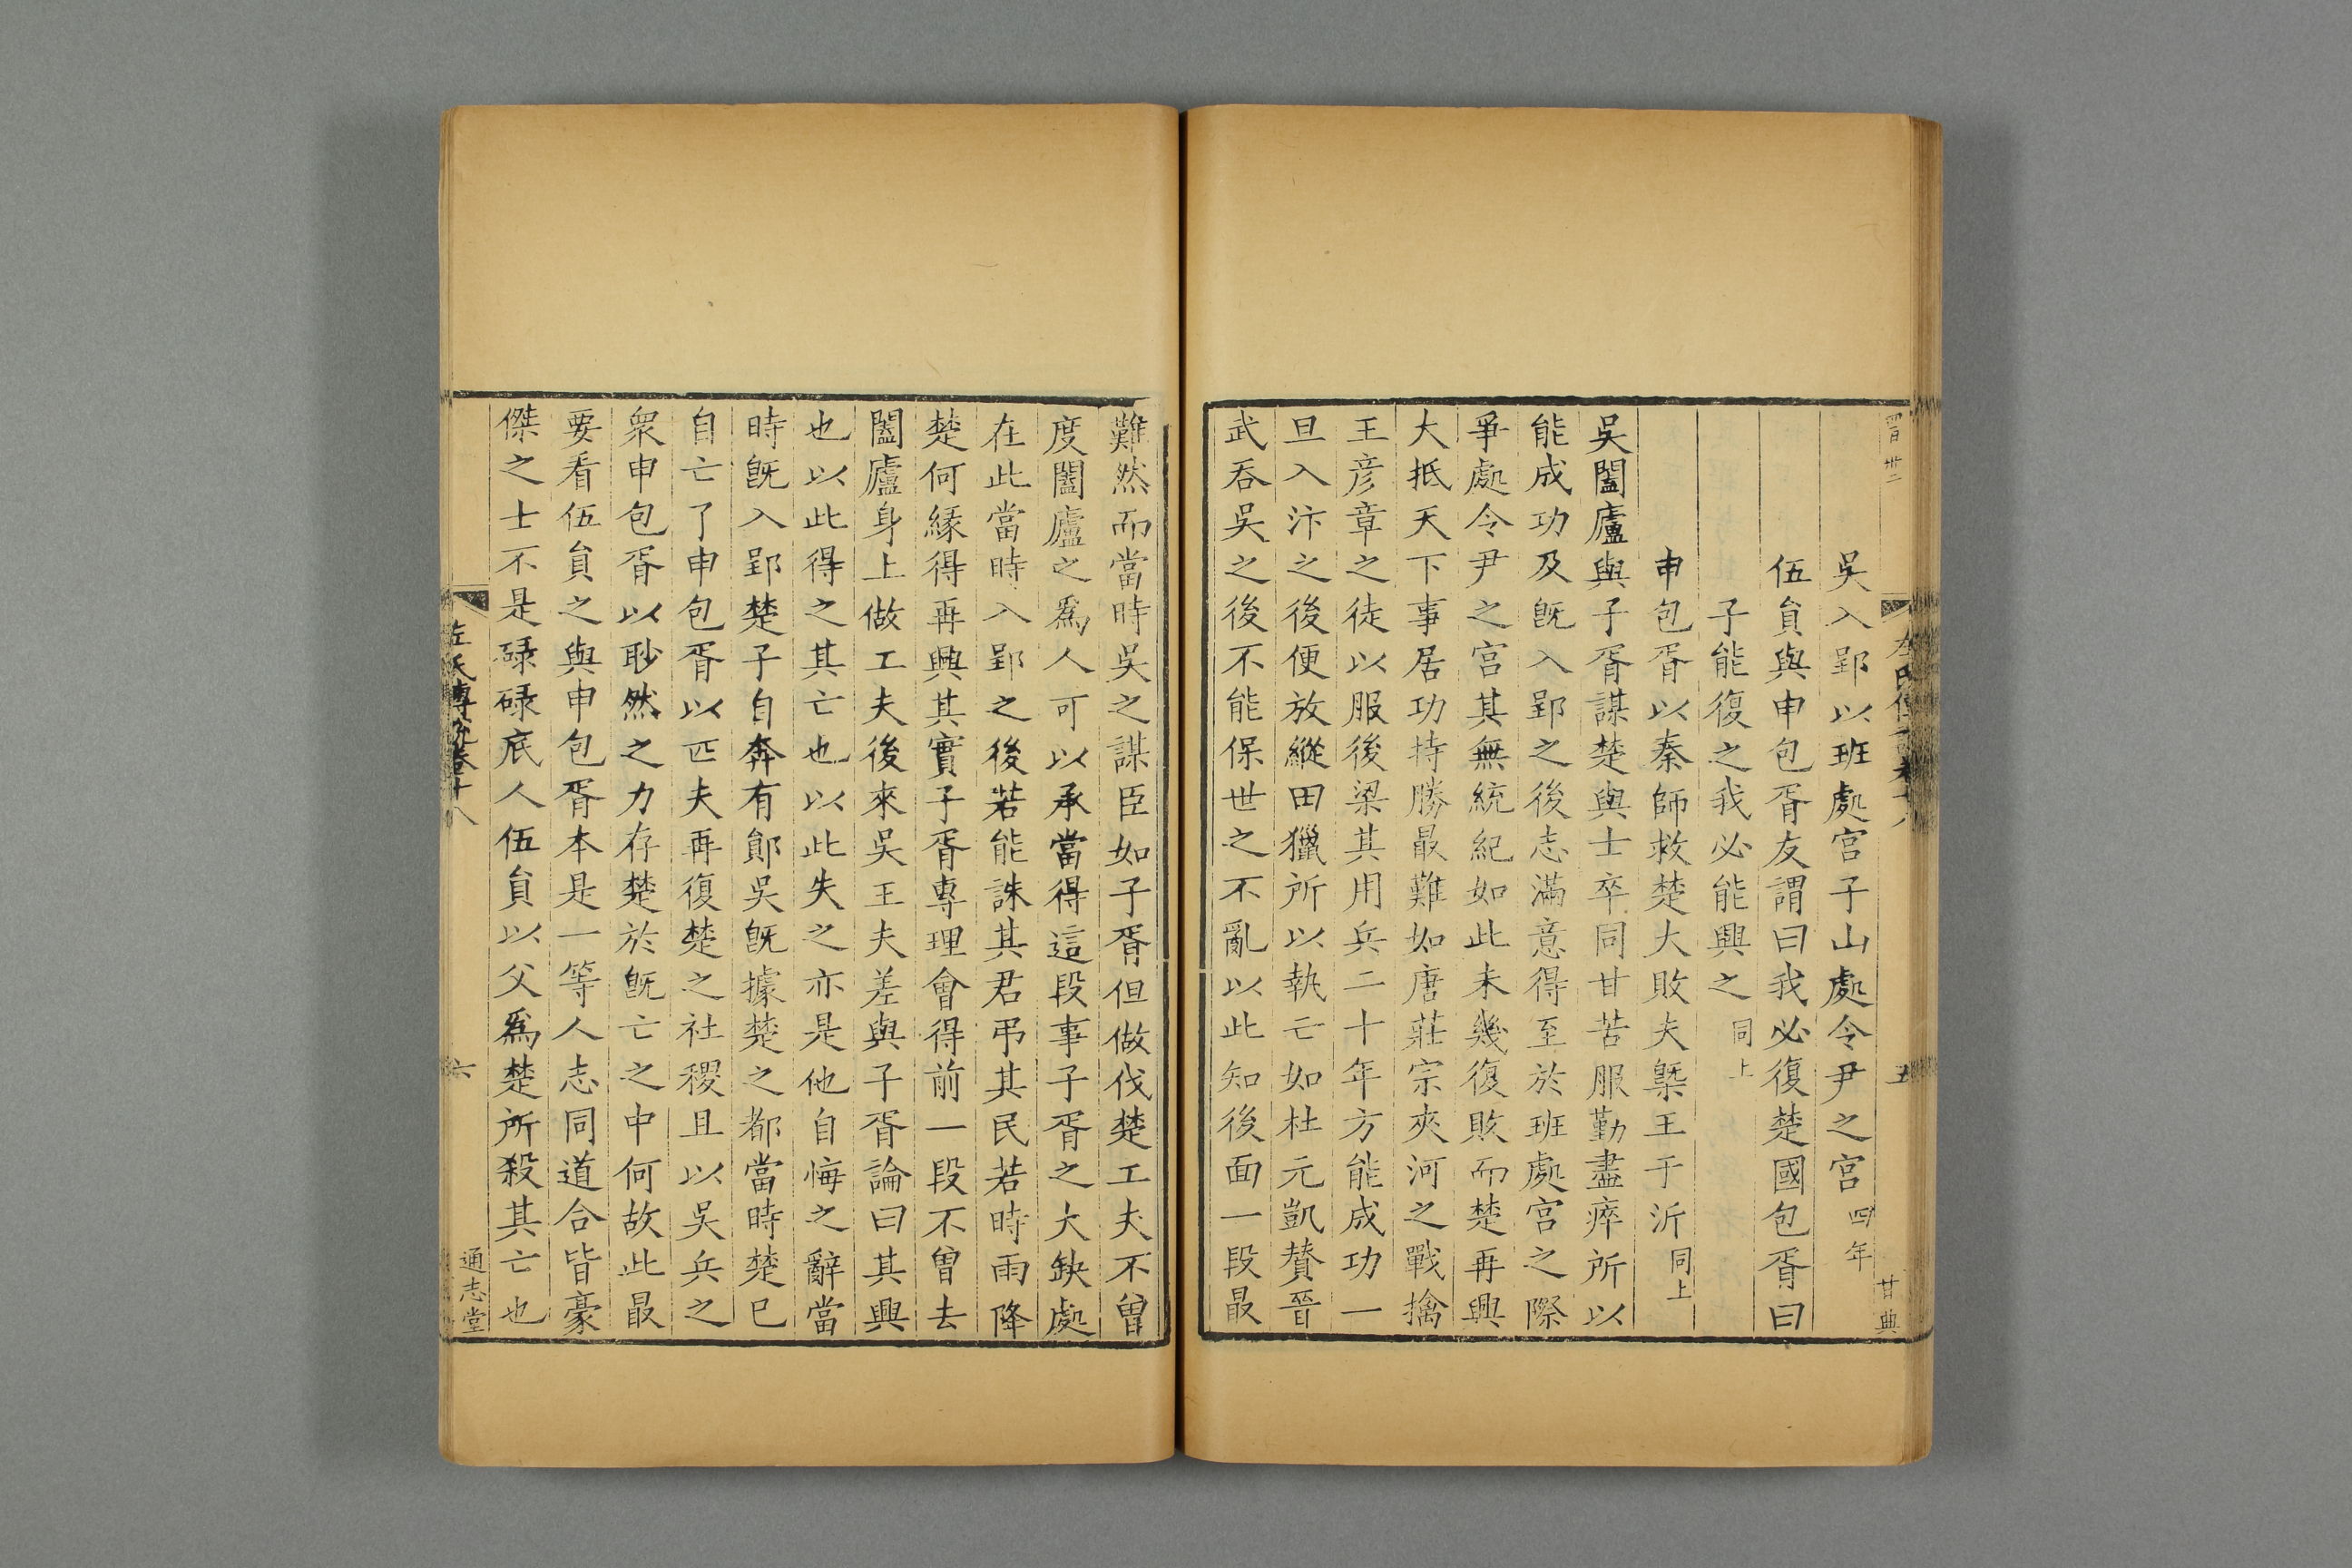 吳入郢以班處宮子山處令尹之宮四年
伍員與申包胥友謂曰我必復楚國包胥曰
子能復之我必能興之同上
申包胥以秦師救楚大敗夫㮣王于沂同上
吳闔廬與子胥謀楚與士卒同甘苦服勤盡瘁所以
能成功及旣入郢之後志滿意得至於班處宮之際
爭處令尹之宮其無統紀如此未幾復敗而楚再興
大抵天下事居功持勝最難如唐莊宗夾河之戰擒
王彥章之徒以服後梁其用兵二十年方能成功一
旦入汴之後便放縱田獵所以執亡如杜元凱贊晉
武吞吳之後不能保世之不亂以此知後面一段最
五
甘典
難然而當時吳之謀臣如子胥但做伐楚工夫不曾
度闔廬之爲人可以承當得這段事子胥之大缺處
在此當時入郢之後若能誅其君弔其民若時雨降
楚何緣得再興其實子胥專理會得前一段不曾去
闔廬身上做工夫後來吳王夫差與子胥論曰其興
也以此得之其亡也以此失之亦是他自悔之辭當
時旣入郢楚子自奔有鄖吳旣據楚之都當時楚已
自亡了申包胥以匹夫再復楚之社稷且以吳兵之
衆申包胥以眇然之力存楚於旣亡之中何故此最
要看伍員之與申包胥本是一等人志同道合皆豪
傑之士不是碌碌底人伍員以父爲楚所殺其亡也
左氏傳說卷十八
六
通志堂